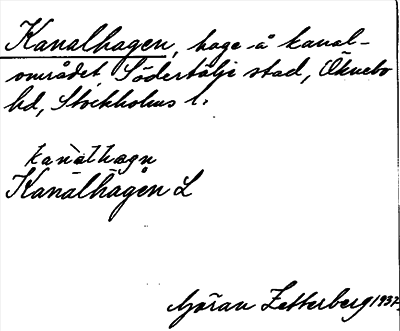 Kanalhagen, hage å kanal-
området, Södertälje stad, Öknebo
hd, Stockholms l.
kanàlhagn
Kanàlhàgen L
Göran Zetterberg 1937.